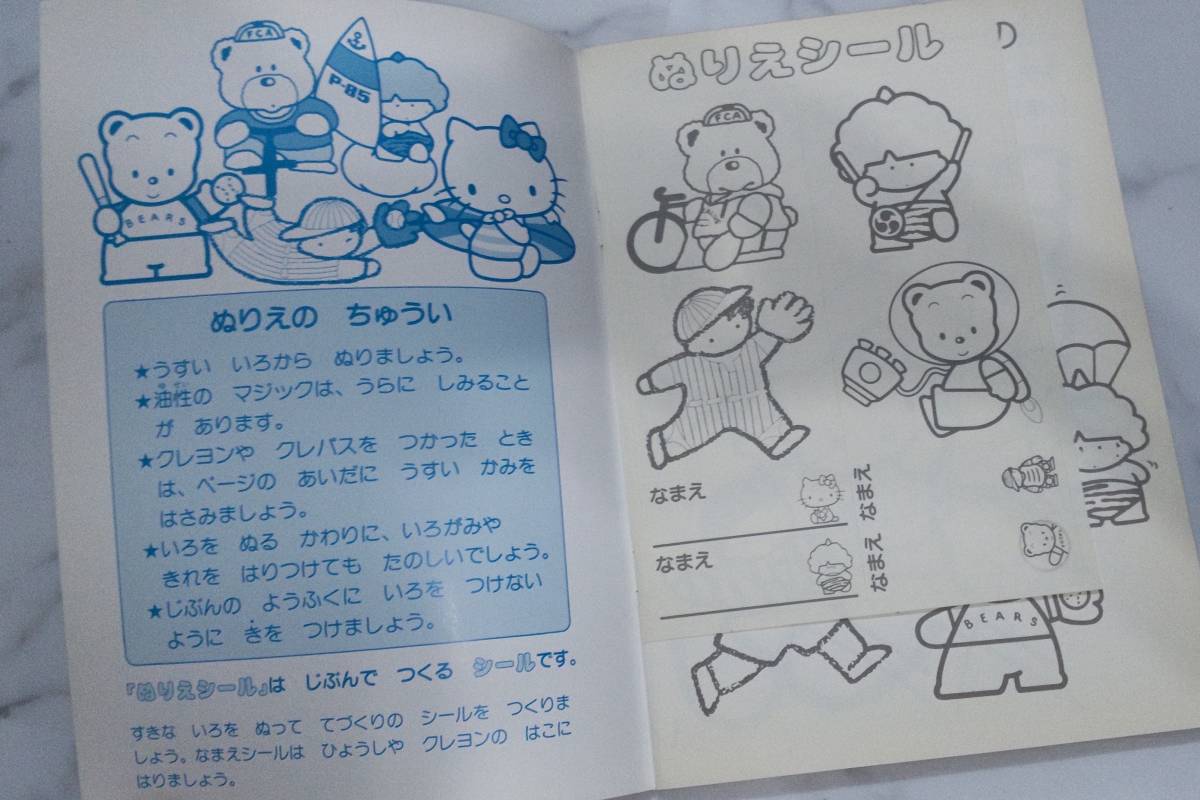 FCA
P-85
BEARS
ぬりえの ちゅうい
★うすい いろから ぬりましょう。
★油性の マジックは、うらに しみること
が あります。
★クレヨンや クレパスを つかった とき
は、ページの あいだに うすい かみを
はさみましょう。
★いろを ぬる かわりに、いろがみや
きれを はりつけても たのしいでしょう。
★じぶんの ようふくに いろを つけない
ように きを つけましょう。
『ぬりえシール』は じぶんで つくる シールです。
すきな いろを ぬって てづくりの シールを つくりま
しょう。なまえシールは ひょうしや クレヨンの はこに
はりましょう。
ぬりえシール
FCA
なまえ
なまえ
なまえ
なまえ
BEARS